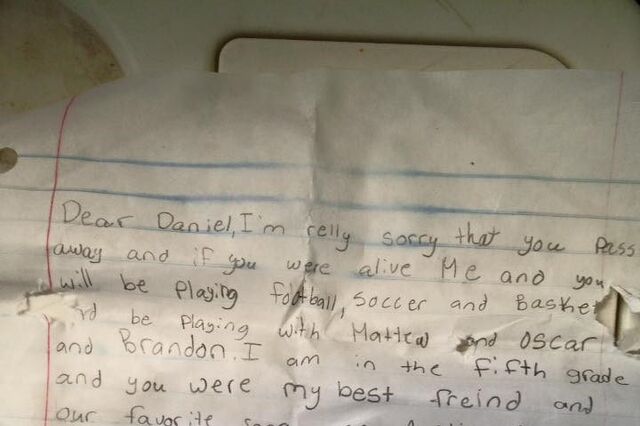 Dear Daniel, I'm relly sorry that you Pass
away and if you were alive Me and you
will be Playing football, Soccer and Baske
be Playing with Mattew and Oscar
and Brandon. I am in the fifth grade
and you were my best freind and
our favorite